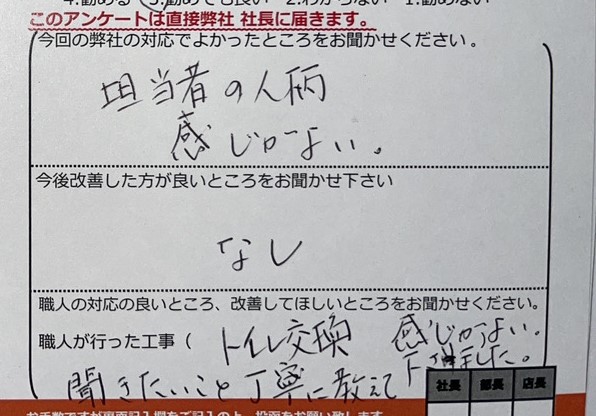 4.勧める 3.勧めても良い 2.わからない 1.勧めない
このアンケートは直接弊社 社長に届きます。
今回の弊社の対応でよかったところをお聞かせください。
担当者の人柄
感じがよい。
今後改善した方が良いところをお聞かせ下さい
なし
職人の対応の良いところ、改善してほしいところをお聞かせください。
職人が行った工事( トイレ交換 感じがよい。
聞きたいこと丁寧に教えて下さいました。
社長 部長 店長